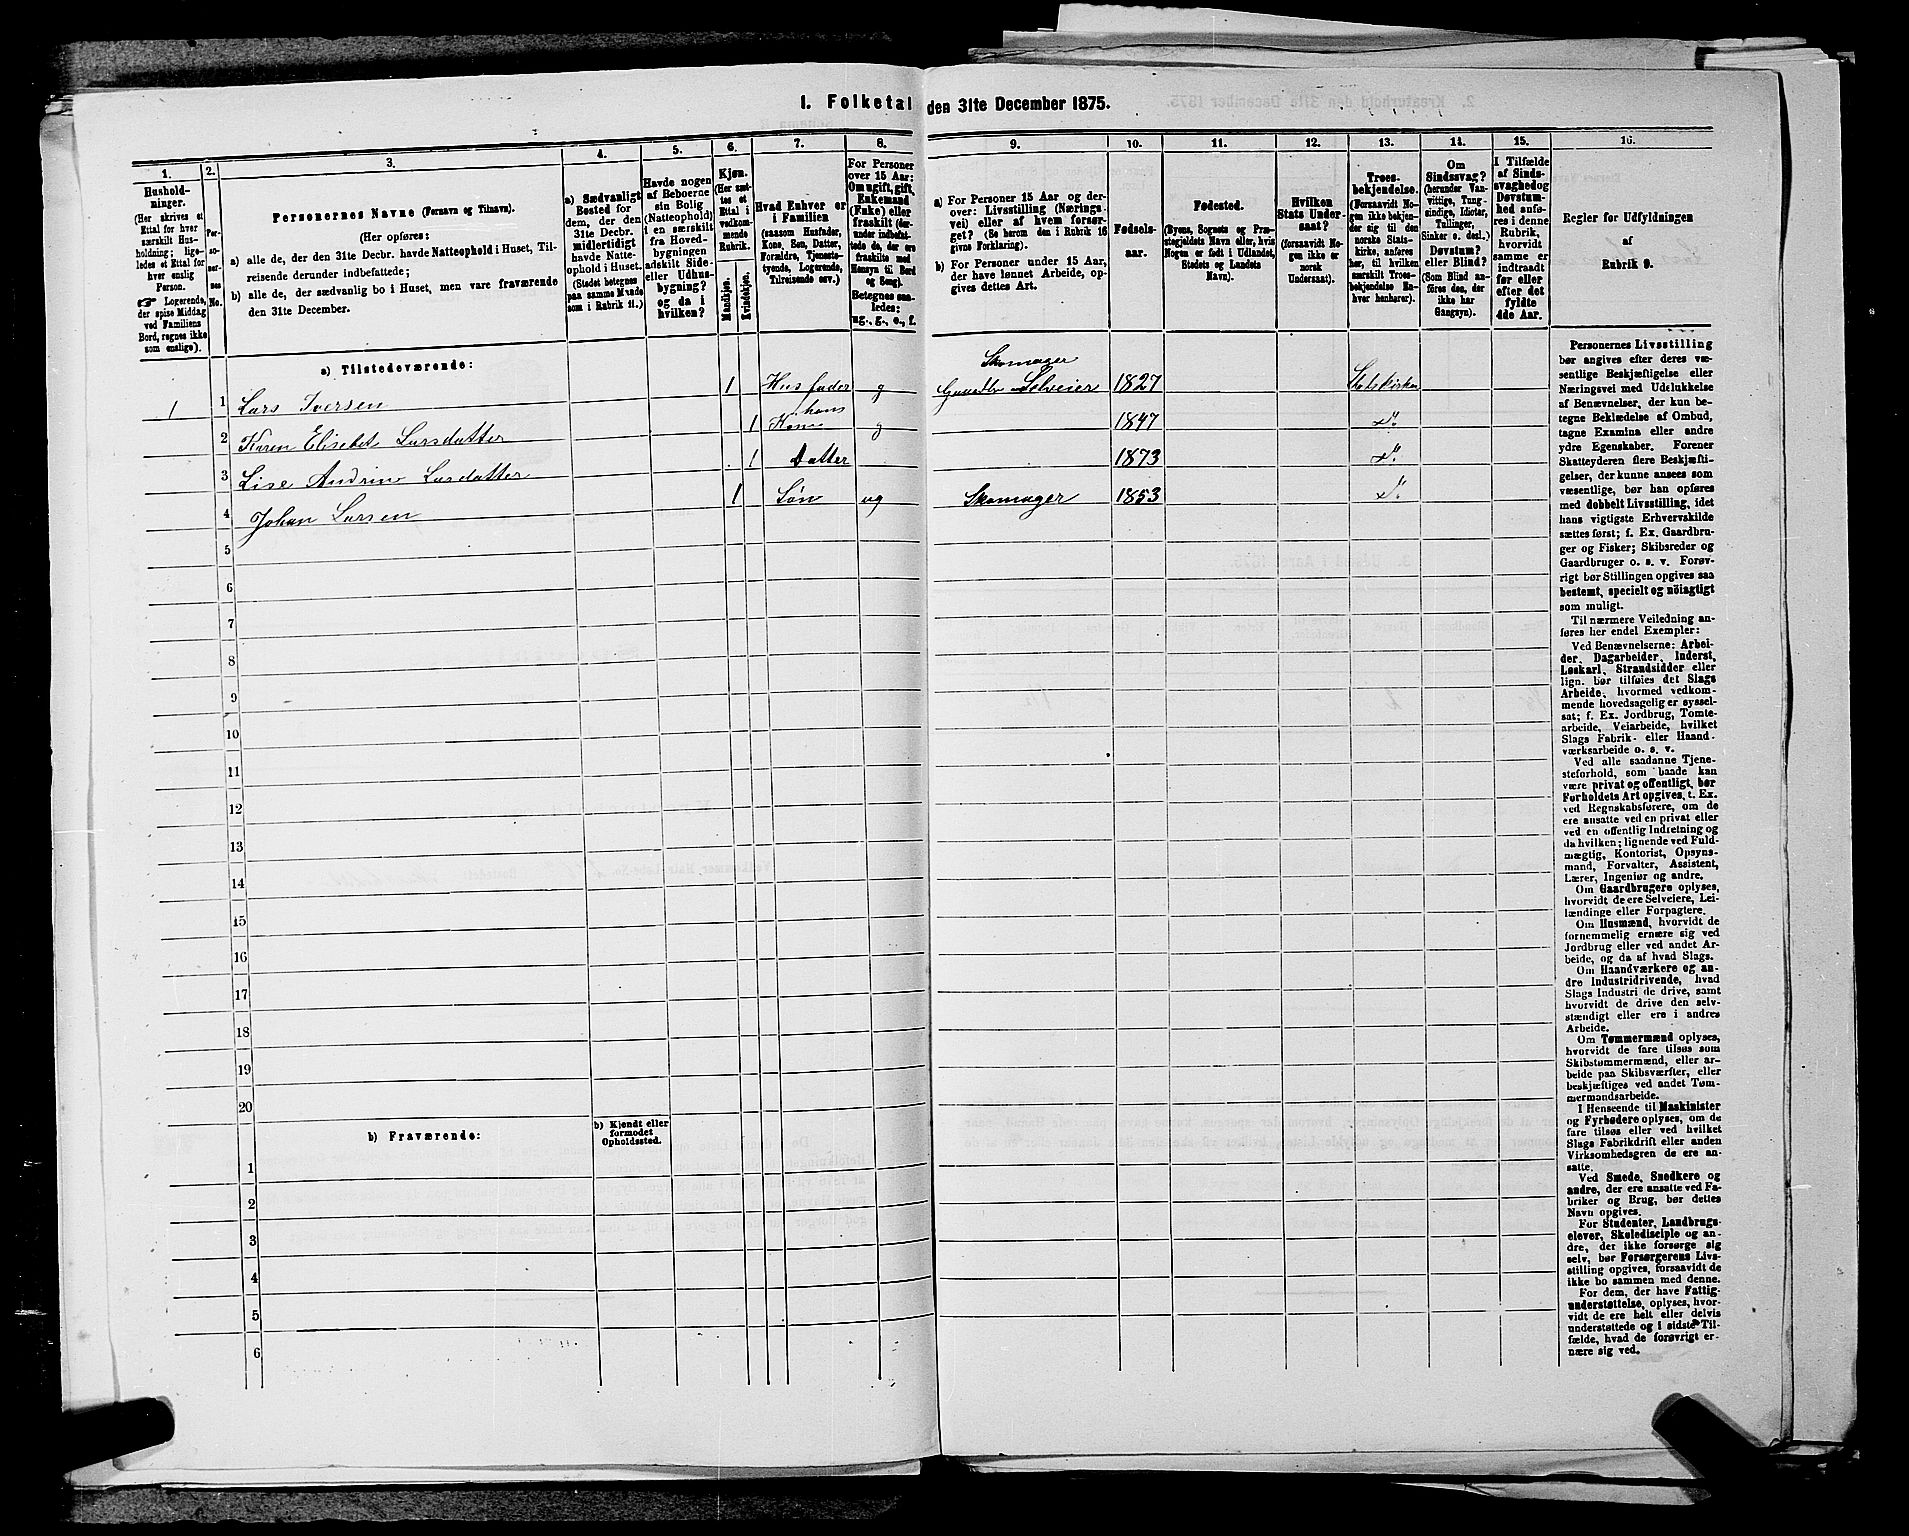 1. Folketal den 31te December 1875.
1.
Hushold-
ninger.
(Her skrives et
Ettal for hver
særskilt Hus-
holdning; lige-
ledes et Ettal for
hver enslig
Person.
Logerende,
der spise Middag
ved Familiens
Bord, regnes ikke
som enslige).
2.
Per-
so-
ner-
nes
No.
3.
Personernes Navne (Fornavn og Tilnavn).
(Her opføres:
a) alle de, der den 31te Decbr. havde Natteophold i Huset, Til-
reisende derunder indbefattede;
b) alle de, der sædvanlig bo i Huset, men vare fraværende
den 31te December.
4.
a) Sædvanligt
Bosted for
dem, der den
31te Decbr.
midlertidigt
havde Natte-
ophold i Huset.
(Stedet betegnes
paa samme Maade
som i Rubrik 11.)
5.
Havde nogen
af Beboerne
sin Bolig
(Natteophold)
i en særskilt
fra Hoved-
bygningen
adskilt Side-
eller Udhus-
bygning?
og da i
hvilken?
6.
Kjøn.
(Her sæt-
tes et
Ettal i
vedkom-
mende
Rubrik.
Mandkjøn.
Kvindekjøn.
7.
Hvad Enhver er
i Familien
(saasom Husfader,
Kone, Søn, Datter,
Forældre, Tjeneste-
tyende, Logerende,
Tilreisende osv.)
8.
For Personer
over 15 Aar:
Om ugift, gift,
Enkemand
(Enke) eller
fraskilt (der-
under indbefat-
tede de, der ere
fraskilte med
Hensyn til Bord
og Seng).
Betegnes saa-
ledes:
ug., g., e., f.
9.
a) For Personer 15 Aar og der-
over: Livsstilling (Nærings-
vei) eller af hvem forsør-
get? (Se herom den i Rubrik 16
givne Forklaring).
b) For Personer under 15 Aar,
der have lønnet Arbeide, op-
gives dettes Art.
10.
Fødsels-
aar.
11.
Fødested.
(Byens, Sognets og Præ-
stegjeldets Navn eller, hvis
Nogen er født i Udlandet,
Stedets og Landets
Navn).
12.
Hvilken
Stats Under-
saat?
(forsaavidt No-
gen ikke er
norsk
Undersaat).
13.
Troes-
bekjendelse.
(Forsaavidt No-
gen ikke bekjen-
der sig til den
norske Stats-
kirke, anføres
her, til hvilken
særskilt Troes-
bekjendelse En-
hver henhører).
14.
Om
Sindssvag?
(herunder Van-
vittige, Tung-
sindige, Idioter,
Tullinger,
Sinker o. desl.)
Døvstum?
eller Blind?
(Som Blind an-
føres den, der
ikke har
Gangsyn).
15.
I Tilfælde
af Sinds-
svaghed og
Døvstum-
hed anfø-
res i denne
Rubrik,
hvorvidt
samme er
indtraadt
før eller
efter det
fyldte
4de Aar.
16.
Regler for Udfyldningen
af
Rubrik 9.
a) Tilstedeværende:
1 1 Lars Iversen 1 Husfader g Skomager Gaardbr. Selveier 1827 Statskirken
2 Karen Elisebet Larsdatter 1 hans Kone g 1847 do
3 Lise Andrine Larsdatter 1 Datter 1873 do
4 Johan Larsen 1 Søn ug Skomager 1853 do
5
6
7
8
9
10
11
12
13
14
15
16
17
18
19
20
b) Fraværende:
b) Kjendt eller
formodet
Opholdssted.
1
2
3
4
5
6
Personernes Livsstilling
bør angives efter deres væ-
sentlige Beskjæftigelse eller
Næringsvei med Udelukkelse
af Benævnelser, der kun be-
tegne Beklædelse af Ombud,
tagne Examina eller andre
ydre Egenskaber. Forener
Skatteyderen flere Beskjæfti-
gelser, der kunne ansees som
væsentlige, bør han opføres
med dobbelt Livsstilling, idet
hans vigtigste Erhvervskilde
sættes først; f. Ex. Gaardbru-
ger og Fisker; Skibsreder og
Gaardbruger o. s. v. Forøv-
rigt bør Stillingen opgives saa
bestemt, specielt og nöiagtigt
som muligt.
Til nærmere Veiledning an-
føres her endel Exempler:
Ved Benævnelserne: Arbei-
der, Dagarbeider, Inderst,
Løskarl, Strandsidder eller
lign. bør tilføies det Slags
Arbeide, hvormed vedkom-
mende hovedsagelig er syssel-
sat; f. Ex. Jordbrug, Tomte-
arbeide, Veiarbeide, hvilket
Slags Fabrik- eller Haand-
værksarbeide o. s. v.
Ved alle saadanne Tjene-
steforhold, som baade kan
være privat og offentligt, bør
Forholdets Art opgives, t. Ex.
ved Regnskabsførere, om de
ere ansatte ved en privat eller
ved en offentlig Indretning og
da hvilken; lignende ved Fuld-
mægtig, Kontorist, Opsyns-
mand, Forvalter, Assistent,
Lærer, Ingeniør og andre.
Om Gaardbrugere oplyses,
hvorvidt de ere Selveiere, Lei-
lændinge eller Forpagtere.
Om Husmænd, hvorvidt de
fornemmelig ernære sig ved
Jordbrug eller ved andet Ar-
beide, og da af hvad Slags.
Om Haandværkere og an-
dre Industridrivende, hvad
Slags Industri de drive, samt
hvorvidt de drive den selv-
stændigt eller ere i andres
Arbeide.
Om Tømmermænd oplyses,
hvorvidt de fare tilsøs som
Skibstømmermænd, eller ar-
beide paa Skibsværfter, eller
beskjæftiges ved andet Tøm-
mermandsarbeide.
I Henseende til Maskinister
og Fyrbødere oplyses, om de
fare tilsøs eller ved hvilket
Slags Fabrikdrift eller anden
Virksomhedsgren de ere an-
satte.
Ved Smede, Snedkere og
andre, der ere ansatte ved Fa-
briker og Brug, bør dettes
Navn opgives.
For Studenter, Landbrugs-
elever, Skoledisciple og an-
dre, der ikke forsørge sig
selv, bør Forsørgerens Livs-
stilling opgives, forsaavidt de
ikke bo sammen med denne.
For dem, der have Fattig-
understøttelse, oplyses, hvor-
vidt de ere helt eller delvis
understøttede og i sidste Til-
fælde, hvad de forøvrigt er-
nære sig ved.